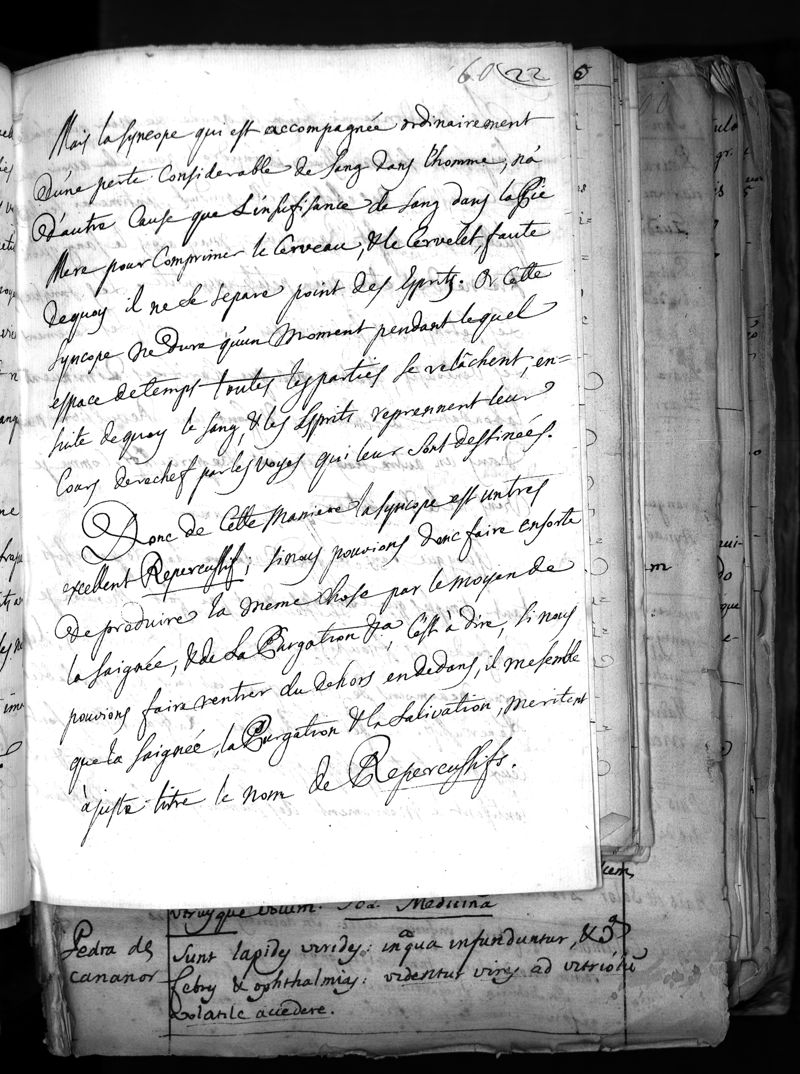 60 22
Mais la syncope qui est accompagnée ordinairement
d'une perte Considerable de Sang dans l'homme, n'a
d'autre Cause que L'insufisance de Sang dans la Pie
Mere pour Comprimer le Cerveau, & le Cervelet, faute
dequoy il ne se separe point des Esprits. Or Cette
Syncope ne Dure qu'un Moment pendant lequel
espace de temps toutes les parties se relâchent, en=
suite dequoy le sang, & les Esprits reprennent leur
Cours derechef par les voyes qui leur sont destinées.
Donc de Cette Maniere la syncope est un tres
excellent Repercussif; si nous pouvions donc faire ensorte
de produire la meme Chose par le moyen de
la saignée, & de La Purgation &a, C'est à dire, si nous
pouvions faire rentrer du dehors en dedans, il me semble
que la saignée, la Purgation & la Salivation, meritent
à juste titre le nom de Repercussifs.
volum. Medicina
Pedra de
Cananor
Sunt lapides virides: in aqua infunduntur, &
febres & ophthalmias: videntur vires ad vitriolū
volatile accedere.